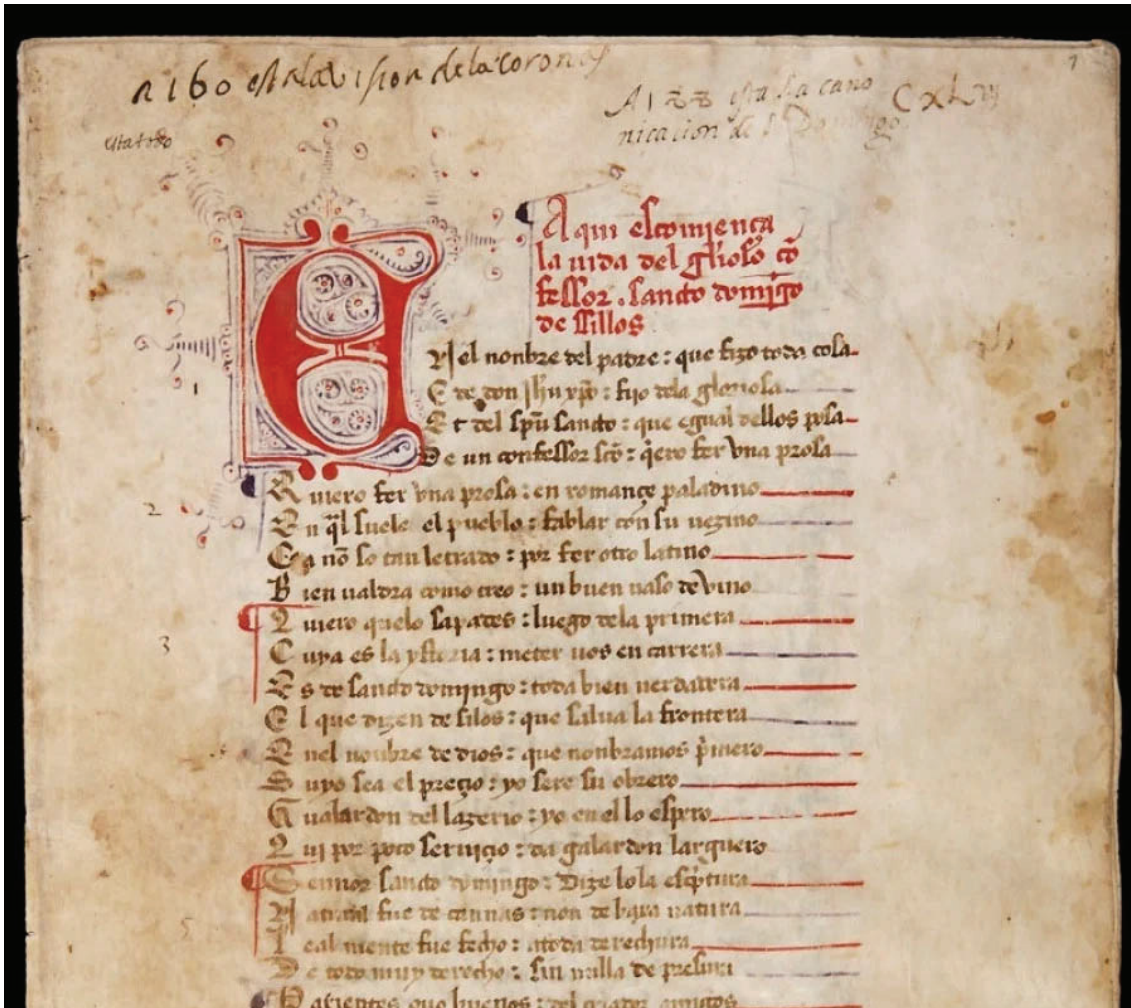 a 160 esta la vision de las coronas
A 188 esta la cano CXLVI
nicacion de S. Domingo
esta todo
Aqui escomienca
la uida del glioso cō
fessor . sancto domīgo
de sillos
EN el nonbre del padre : que fizo toda cosa
E de don ihu xpo : fijo dela gloriosa
Et del spū sancto : que egual dellos posa
De un confessor scō : q̄ero fer vna prosa
1
Quiero fer vna prosa : en romançe paladino
2
En q̄l suele el pueblo : fablar con su uezino
Ca nō so tan letrado : por fer otro latino
Bien ualdra como creo : un buen uaso de vino
Quiero quelo sapades : luego dela primera
3
Cuya es la ystoria : meter uos en carrera
Es de sancto domingo : toda bien uerdadera
El que dizen de silos : que salua la frontera
Enel nonbre de dios : que nonbramos p̄mero
Suyo sea el preçio : yo sere su obrero
Gualardon del lazerio : yo en el lo espero
Qui por poco seruiçio : da galardon larguero
Sennor sancto domingo : dize lo la esc̄ptura
Natural fue de cannas : non de baxa natura
Leal miente fue fecho : atoda derechura
De todo muy derecho : sin nulla de presura
Parientes ouo buenos : del criador amigos